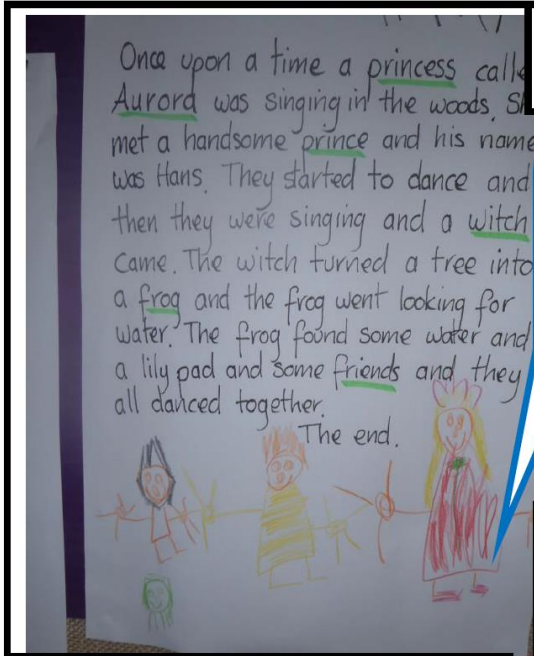 Once upon a time a princess calle
Aurora was singing in the woods. Sh
met a handsome prince and his name
was Hans. They started to dance and
then they were singing and a witch
came. The witch turned a tree into
a frog and the frog went looking for
water. The frog found some water and
a lily pad and some friends and they
all danced together.
The end.